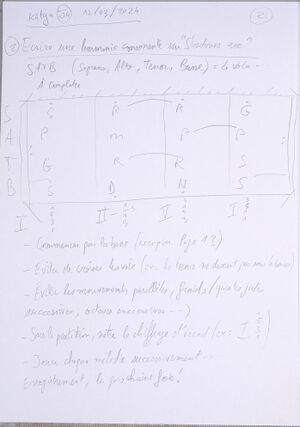 Katya 12/03/2024 (2)
② Ecrire une harmonie consonante sur "Shostrom ave"
SATB (Soprano, Alto, Tenor, Basse) = 4 voix...
à compléter
S S R R G
A P m P P
T G R R S
B S D N S
I II V I
- Commencer par la basse (recopier Page 1?)
- Eviter de croiser les voix (ex: le tenor ne descend pas sous la basse)
- Eviter les mouvements parallèles, (quintes
successives, octaves successives...)
- Sur la partition, noter le chiffrage d'accord (ex: I
- Jouer chaque mélodie successivement...
Enregistrement, la prochaine fois!